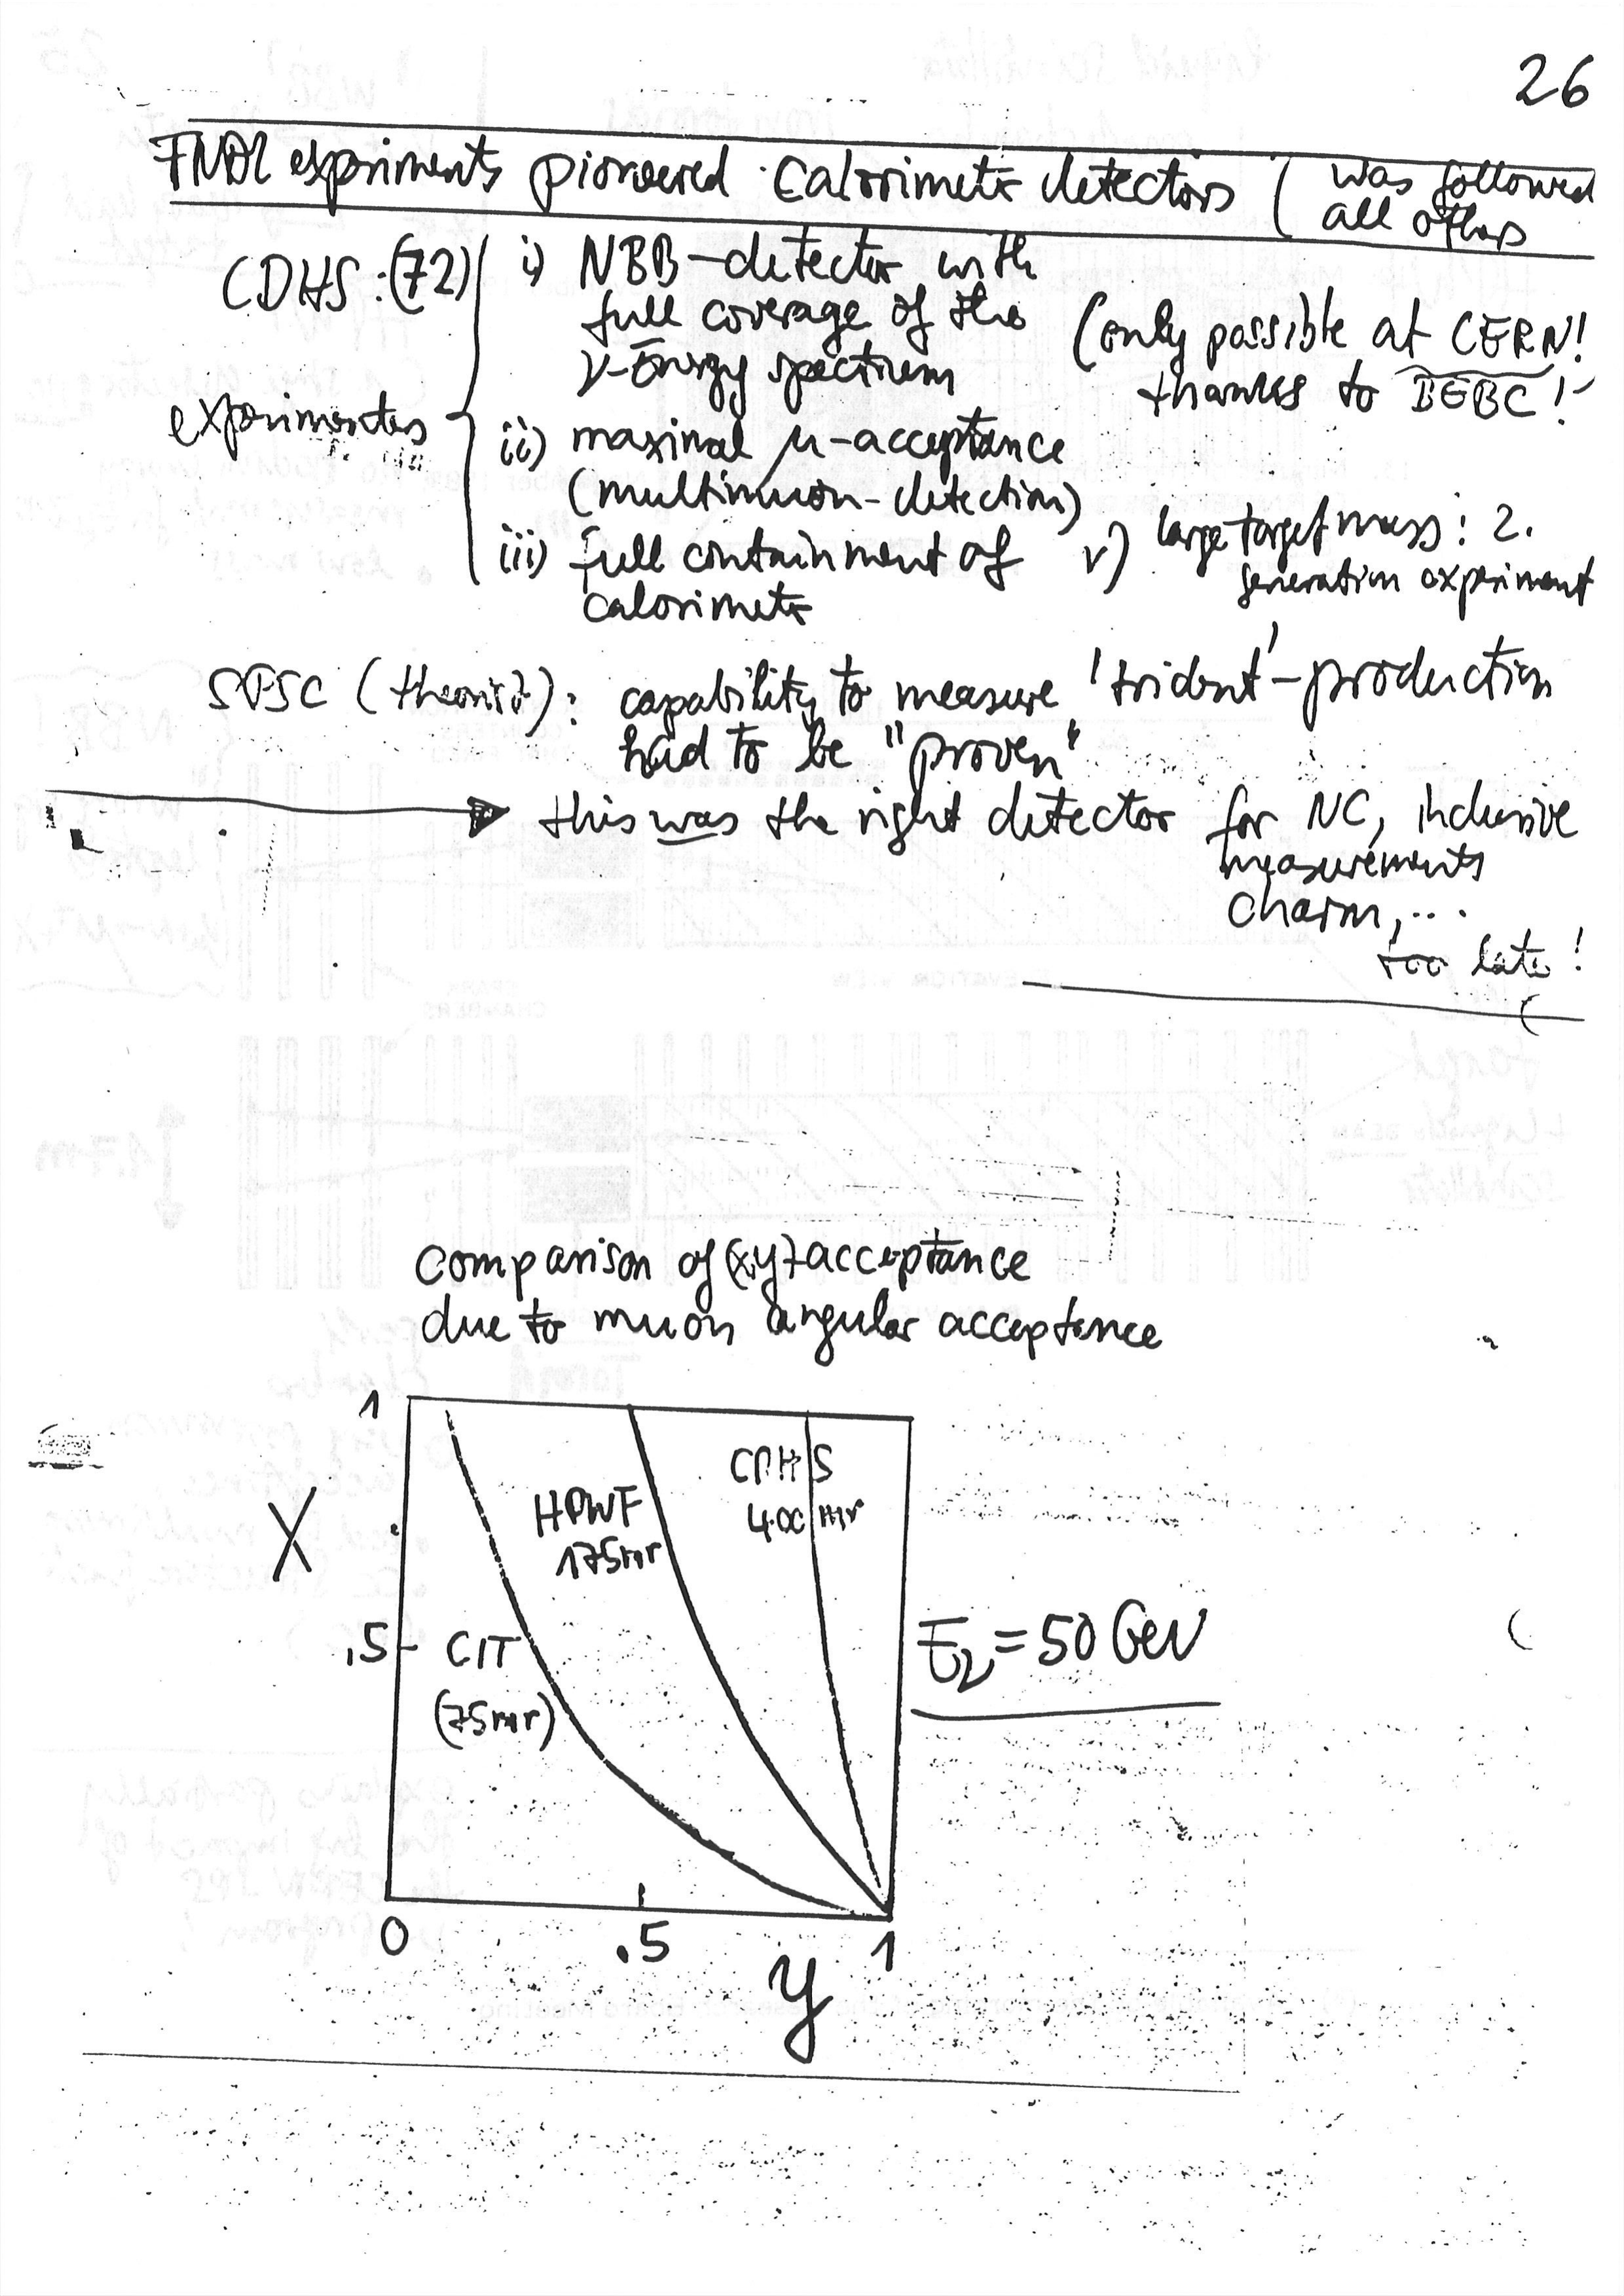 26
FNAL experiments pioneered Calorimeter detectors ( was followed
all others
CDHS :(72) i) NBB-detector with
full coverage of the
ν-Energy spectrum
(only possible at CERN!
thanks to BEBC!
experimenters
ii) maximal μ-acceptance
(multimuon-detection)
iii) full containment of
calorimeter
v) large target mass : 2.
generation experiment
SPSC (theorist): capability to measure 'trident'-production
had to be "proven"
this was the right detector for NC, inclusive
measurements
charm,...
too late!
comparison of (x,y) acceptance
due to muon angular acceptance
1
CDHS
400 mr
HPWF
175mr
X
.5
CIT
(75mr)
Eν = 50 GeV
0
.5
1
y